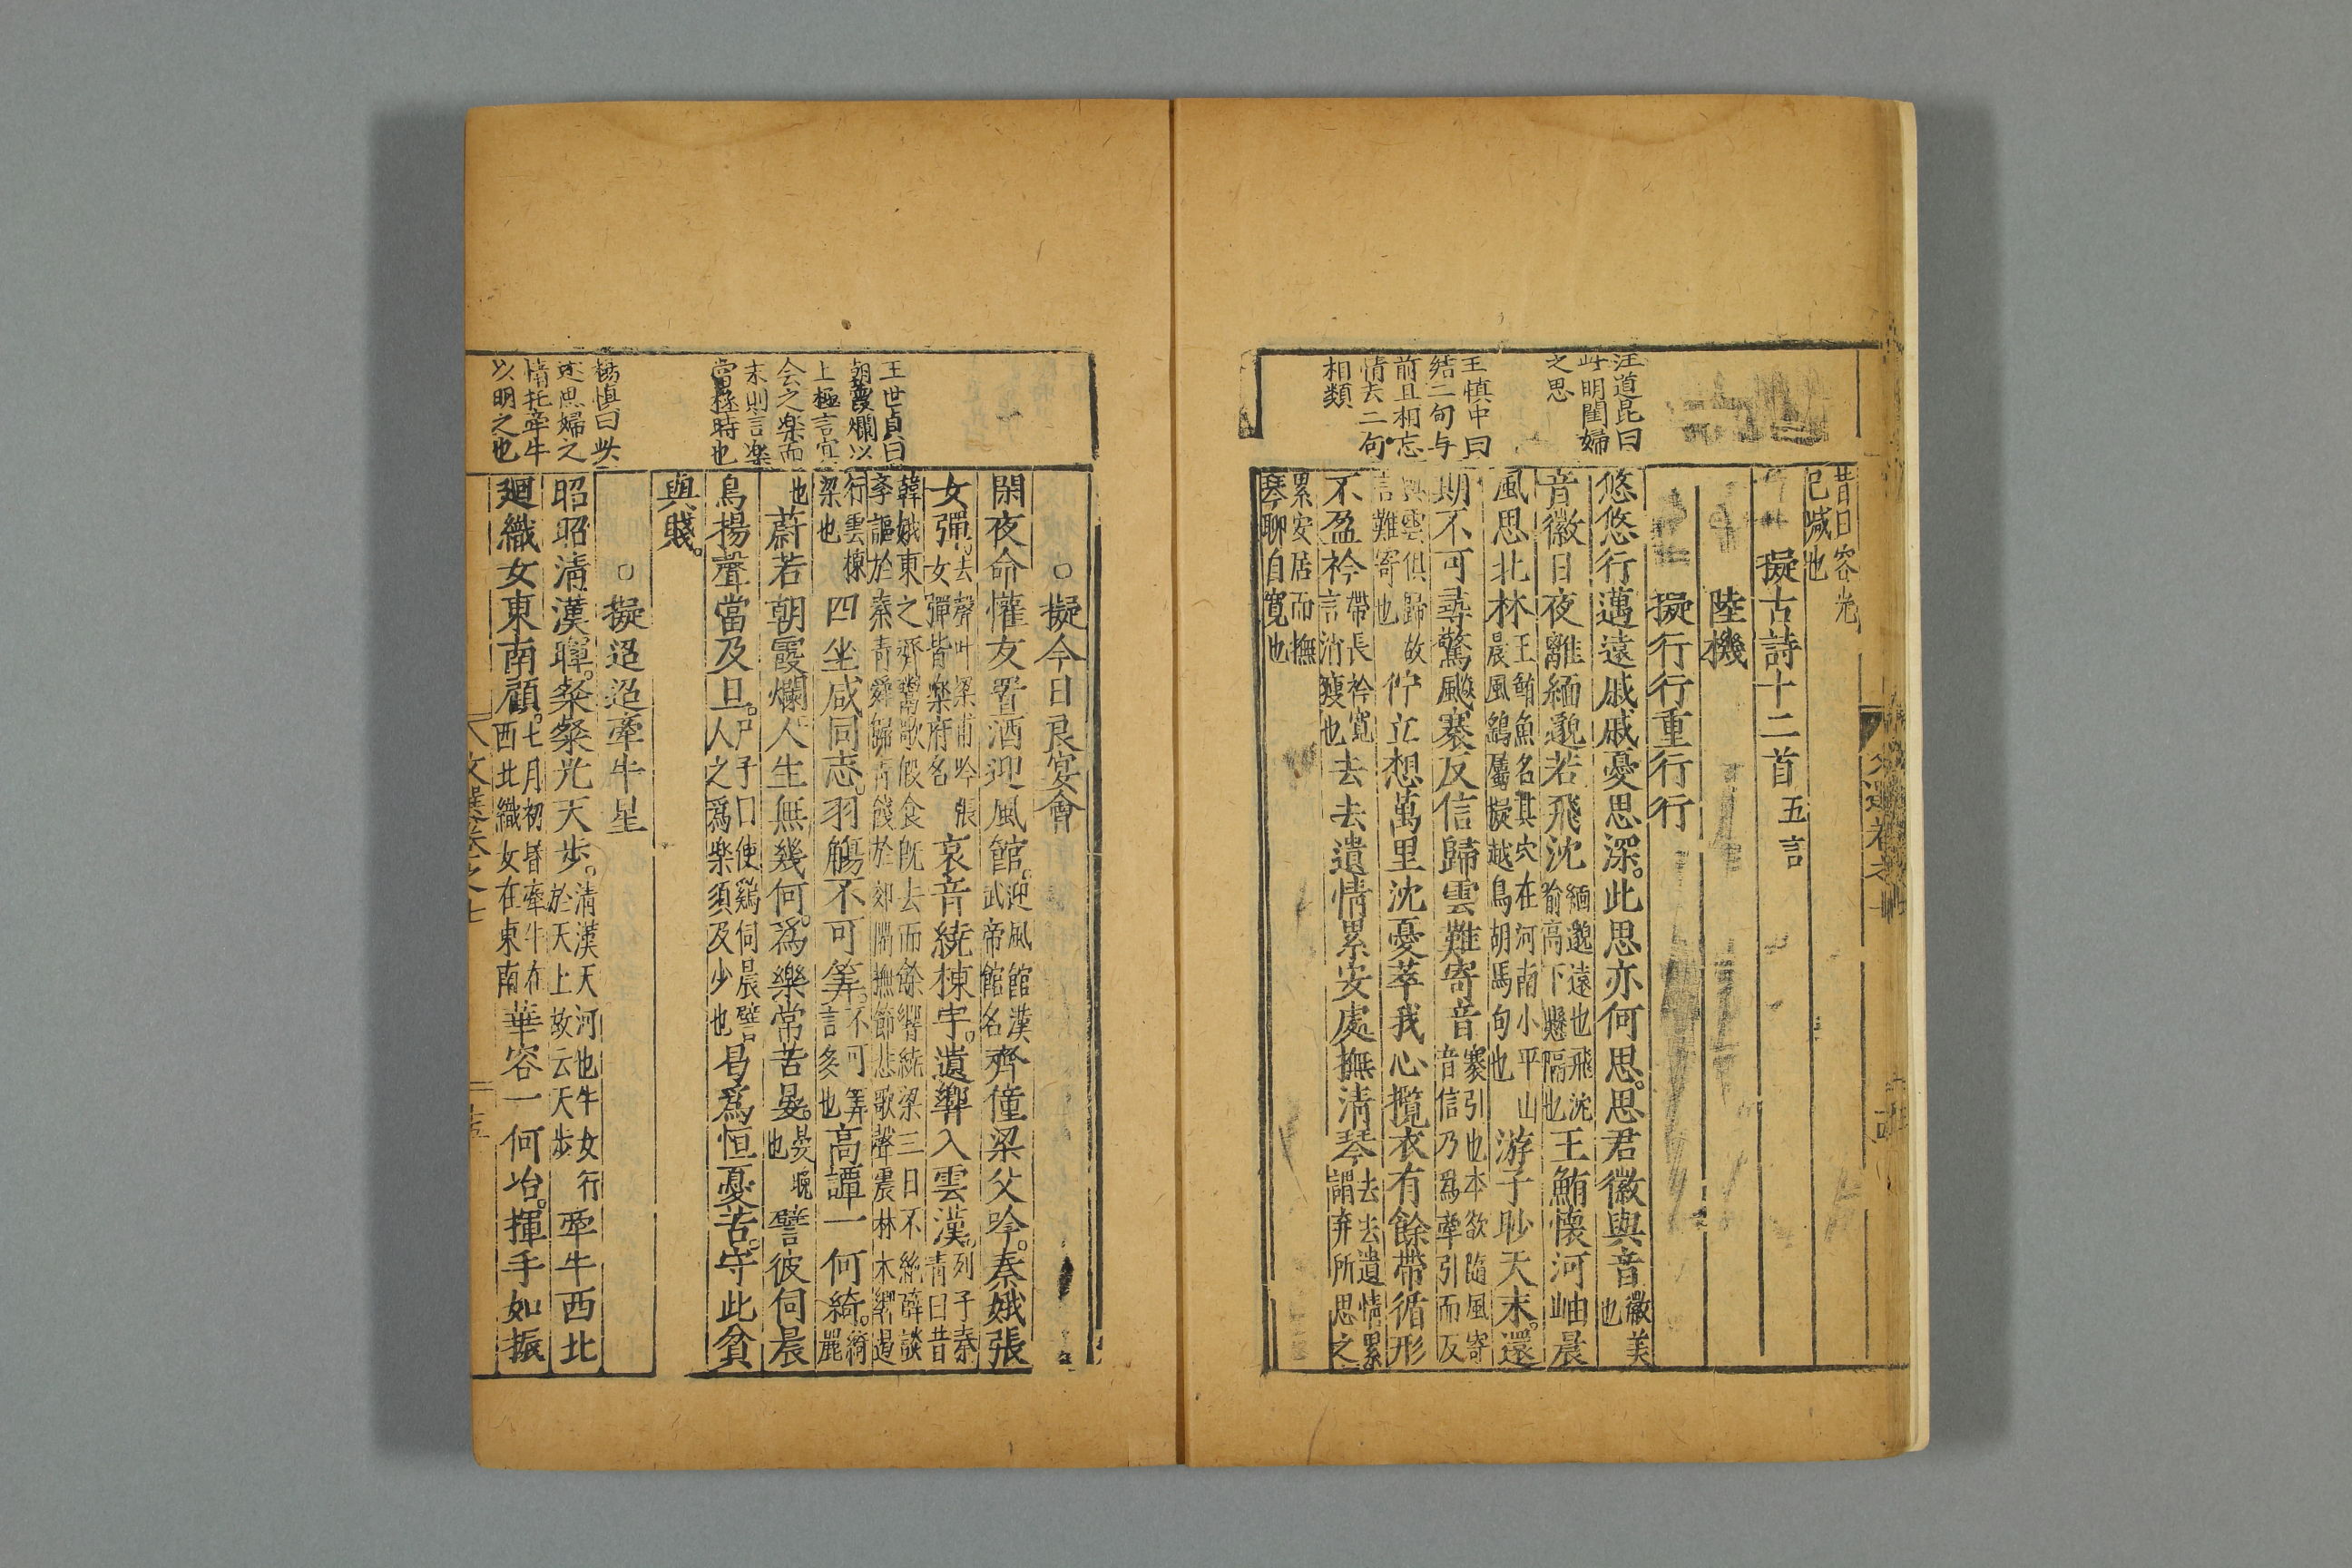 汪道昆曰
此明閨婦
之思
王慎中曰
結二句与
前且相忘
情去二句
相類
昔日容光
已減也
擬古詩十二首 五言
陸機
擬行行重行行
悠悠行邁遠戚戚憂思深。此思亦何思。思君徽與音 徽美也
音徽日夜離緬邈若飛沈 緬邈遠也飛沈喻高下懸隔也 王鮪懷河岫晨
風思北林 王鮪魚名其穴在河南小平山晨風鷂屬擬越鳥胡馬句也 游子眇天末。還
期不可尋驚飈褰反信歸雲難寄音 褰引也本欲隨風寄音信乃為牽引而反
與雲俱歸故言難寄也 佇立想萬里沈憂萃我心攬衣有餘帶循形
不盈衿 帶長衿寬言消瘦也 去去遺情累安處撫清琴 去去遺情累謂弃所思之
累安居而撫琴聊自寬也
王世貞曰
朝霞爛以
上極言宴
会之楽而
末則言楽
當極時也
楊慎曰此
述思婦之
情托牽牛
以明之也
○擬今日良宴會
閑夜命懽友置酒迎風館。 迎風館漢武帝館名 齊僮梁父吟。秦娥張
女彈。 去聲叶梁甫吟張女彈皆樂府名 哀音繞棟宇。遺響入雲漢。 列子秦青曰昔
韓娥東之齊鬻歌假食既去而餘響繞梁三日不絶薛談李謳於秦青辤歸青餞於郊關撫節悲歌聲震林木響遏
行雲棟梁也 四坐咸同志。羽觴不可筭。 不可筭言多也 高譚一何綺。 綺麗
也 蔚若朝霞爛人生無幾何。為樂常苦晏。 晏晚也 譬彼伺晨
鳥揚聲當及旦。 尸子曰使鷄伺晨譬人之爲楽須及少也 曷爲恒憂苦。守此貧
與賤。
○擬迢迢牽牛星
昭昭清漢暉。粲粲光天步。 清漢天河也牛女行於天上故云天步 牽牛西北
廻織女東南顧。 七月初昏牽牛在西北織女在東南 華容一何冶。揮手如振